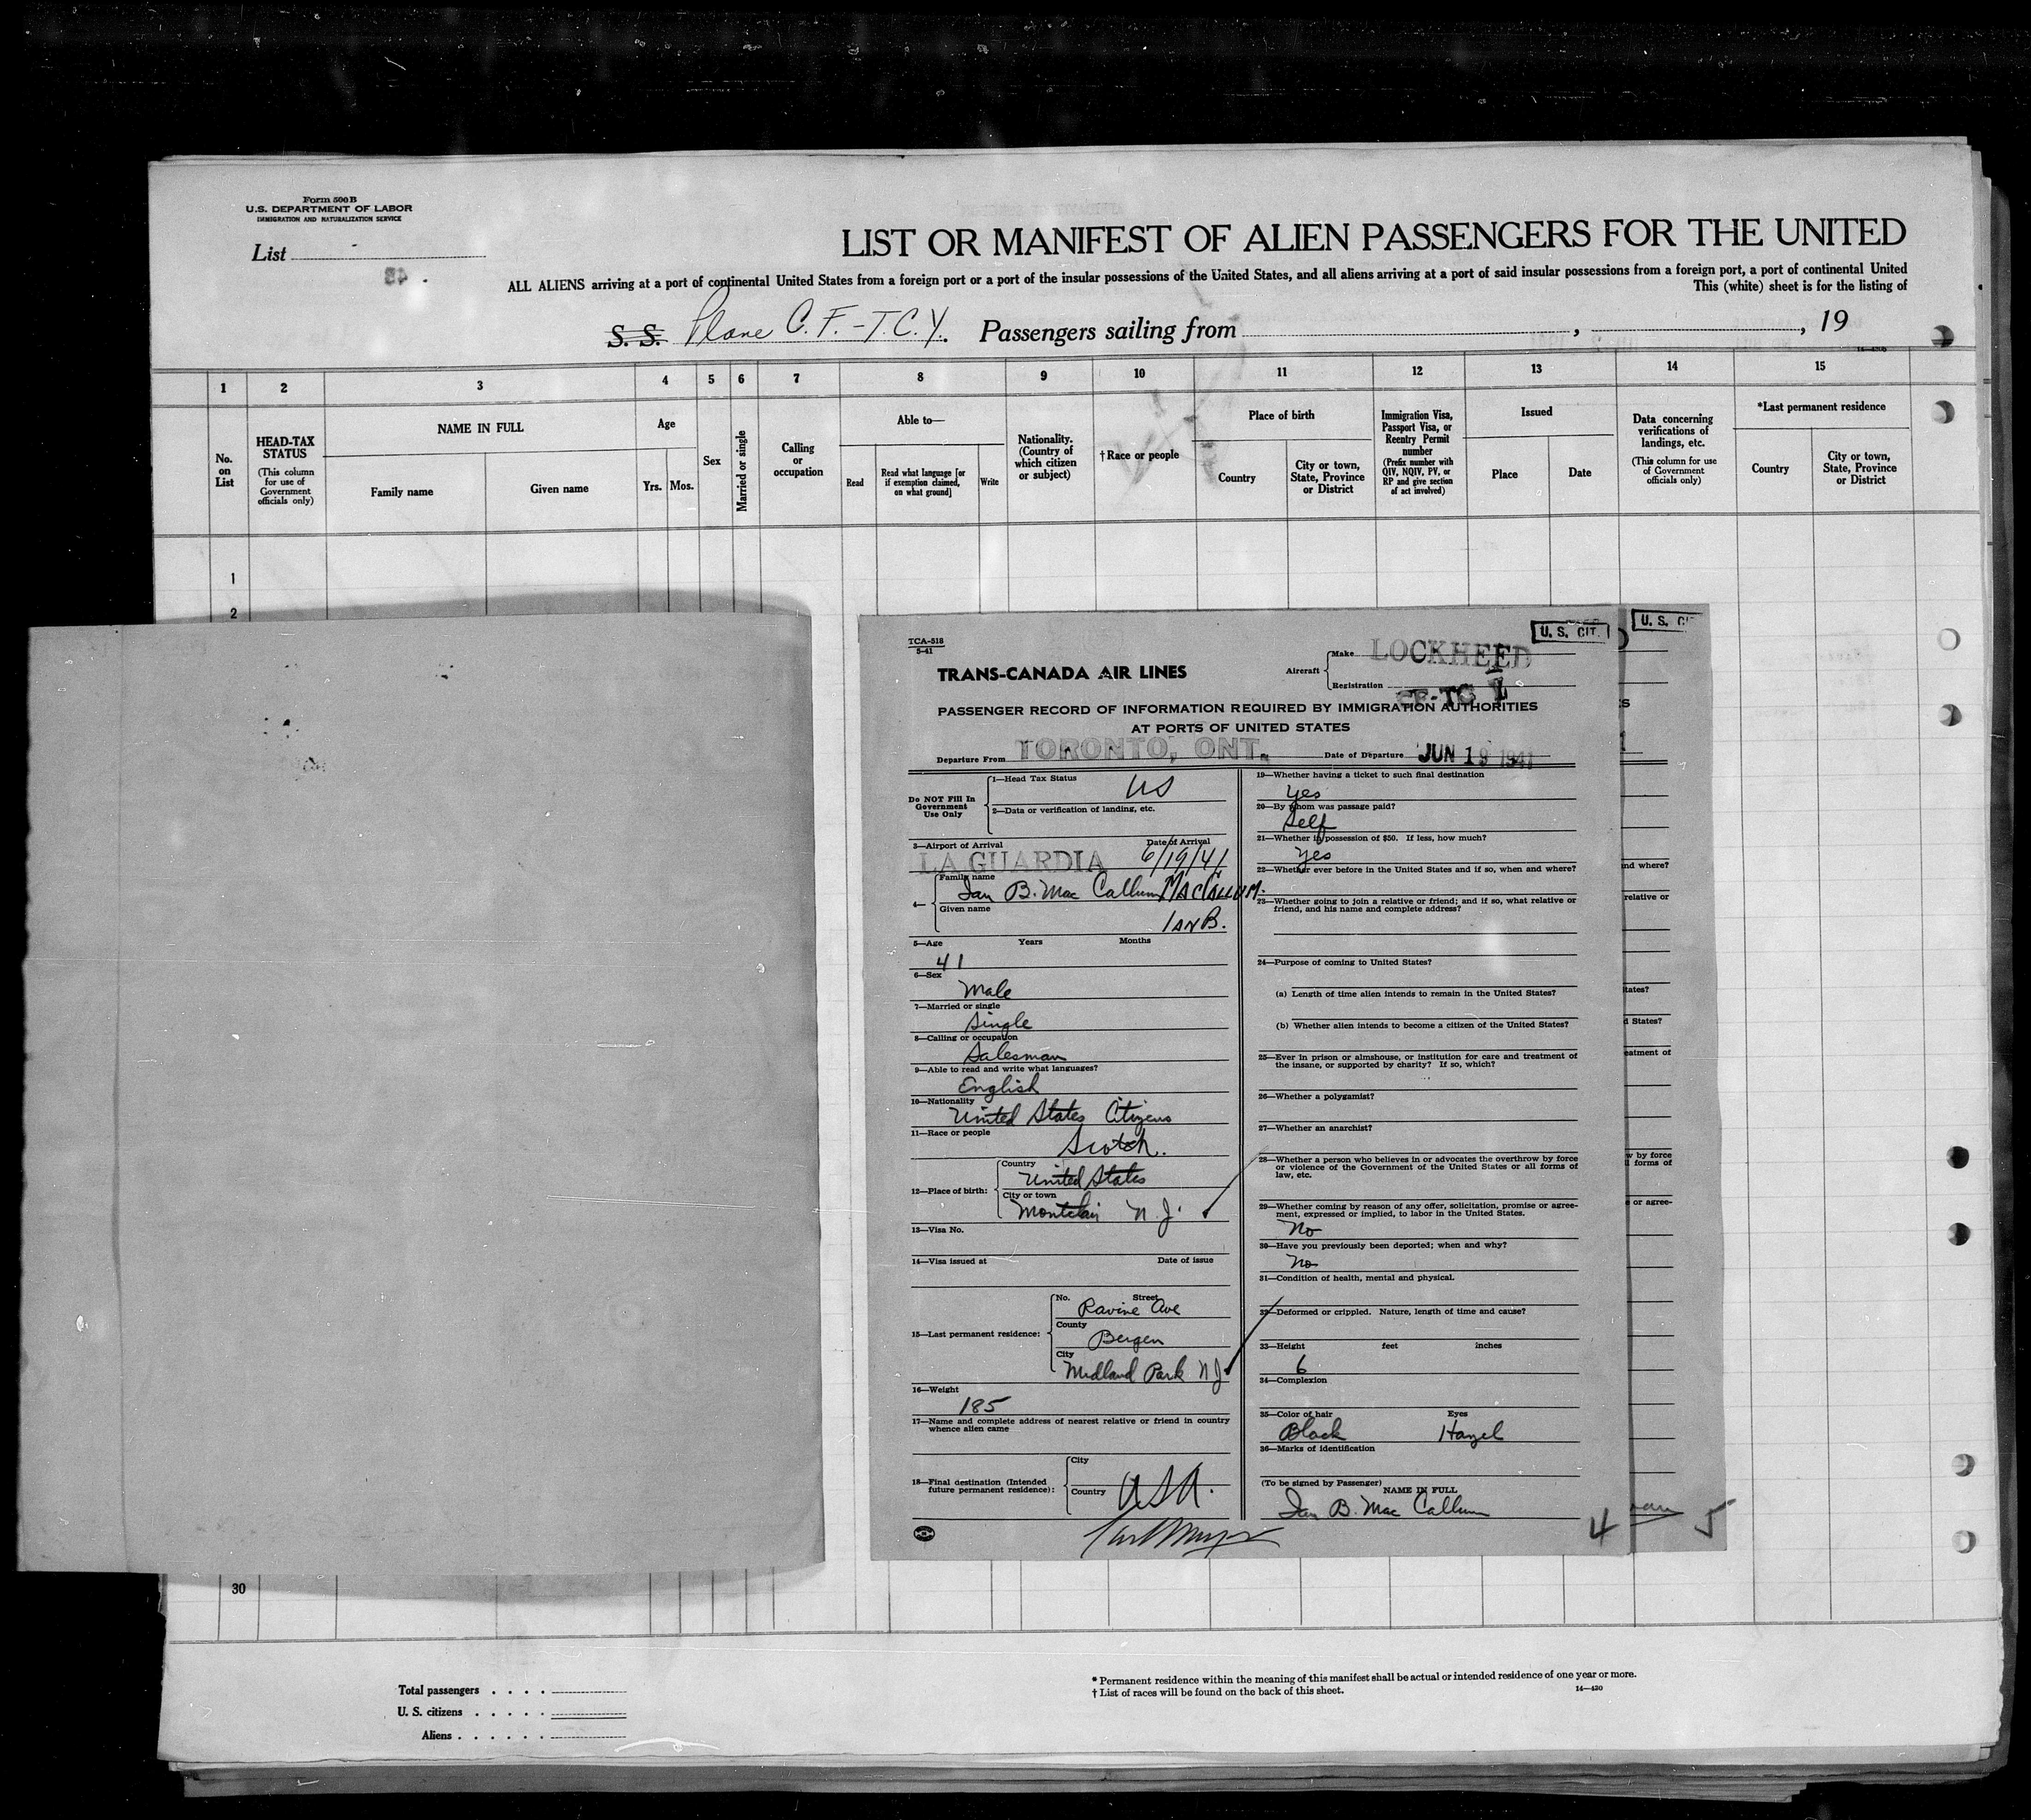 Form 500B
U.S. DEPARTMENT OF LABOR
IMMIGRATION AND NATURALIZATION SERVICE
List
LIST OR MANIFEST OF ALIEN PASSENGERS FOR THE UNITED
ALL ALIENS arriving at a port of continental United States from a foreign port or a port of the insular possessions of the United States, and all aliens arriving at a port of said insular possessions from a foreign port, a port of continental United
This (white) sheet is for the listing of
S. S. Plane C.F.-T.C.Y. Passengers sailing from , , 19
1 2 3 4 5 6 7 8 9 10 11 12 13 14 15
No. on List
HEAD-TAX STATUS
(This column for use of Government officials only)
NAME IN FULL
Family name
Given name
Age
Yrs. Mos.
Sex
Married or single
Calling or occupation
Able to—
Read
Read what language [or if exemption claimed, on what ground]
Write
Nationality. (Country of which citizen or subject)
†Race or people
Place of birth
Country
City or town, State, Province or District
Immigration Visa, Passport Visa, or Reentry Permit number
(Prefix number with QIV, NQIV, PV, or RP and give section of act involved)
Issued
Place
Date
Data concerning verifications of landings, etc.
(This column for use of Government officials only)
*Last permanent residence
Country
City or town, State, Province or District
1
2
TCA-518
5-41
TRANS-CANADA AIR LINES
Aircraft
Make LOCKHEED
Registration CF-TC
U. S. CIT.
U. S. CI
PASSENGER RECORD OF INFORMATION REQUIRED BY IMMIGRATION AUTHORITIES
AT PORTS OF UNITED STATES
Departure From TORONTO, ONT. Date of Departure JUN 19 1941
Do NOT Fill In Government Use Only
1—Head Tax Status US
2—Data or verification of landing, etc.
3—Airport of Arrival Date of Arrival
LA GUARDIA 6/19/41
4—
Family name
Ian B. Mac Callum MACCALLUM.
Given name
IAN B.
5—Age Years Months
41
6—Sex
Male
7—Married or single
Single
8—Calling or occupation
Salesman
9—Able to read and write what languages?
English
10—Nationality
United States Citizens
11—Race or people
Scotch.
12—Place of birth:
Country
United States
City or town
Montclair N. J.
13—Visa No.
14—Visa issued at Date of issue
15—Last permanent residence:
No. Street
Ravine Ave
County
Bergen
City
Midland Park NJ
16—Weight
185
17—Name and complete address of nearest relative or friend in country whence alien came
18—Final destination (Intended future permanent residence):
City
Country USA.
19—Whether having a ticket to such final destination
Yes
20—By whom was passage paid?
Self
21—Whether in possession of $50. If less, how much?
Yes
22—Whether ever before in the United States and if so, when and where?
23—Whether going to join a relative or friend; and if so, what relative or friend, and his name and complete address?
24—Purpose of coming to United States?
(a) Length of time alien intends to remain in the United States?
(b) Whether alien intends to become a citizen of the United States?
25—Ever in prison or almshouse, or institution for care and treatment of the insane, or supported by charity? If so, which?
26—Whether a polygamist?
27—Whether an anarchist?
28—Whether a person who believes in or advocates the overthrow by force or violence of the Government of the United States or all forms of law, etc.
29—Whether coming by reason of any offer, solicitation, promise or agreement, expressed or implied, to labor in the United States.
No
30—Have you previously been deported; when and why?
No
31—Condition of health, mental and physical.
32—Deformed or crippled. Nature, length of time and cause?
33—Height feet inches
6
34—Complexion
35—Color of hair Eyes
Black Hazel
36—Marks of identification
(To be signed by Passenger)
NAME IN FULL
Ian B. Mac Callum
4
5
nd where?
relative or
tates?
d States?
eatment of
w by force
l forms of
e or agree-
30
Total passengers
U. S. citizens
Aliens
* Permanent residence within the meaning of this manifest shall be actual or intended residence of one year or more.
† List of races will be found on the back of this sheet.
14—420